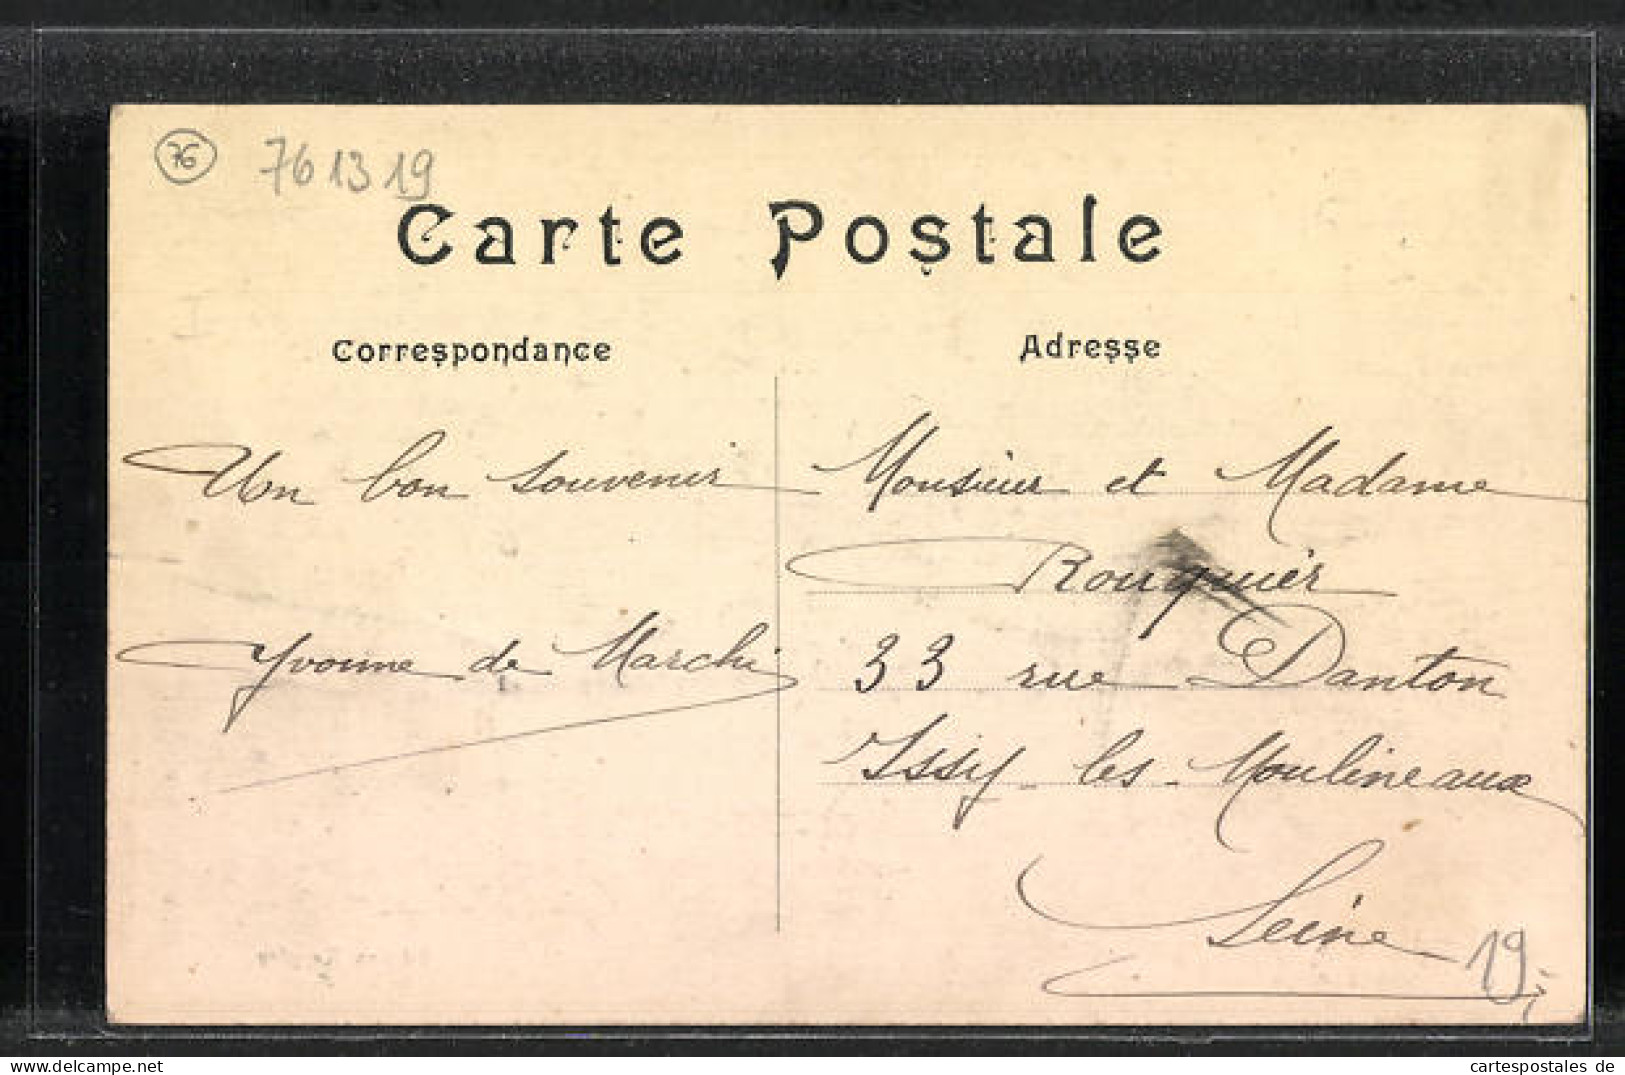 76
761319
Carte Postale
Correspondance
Adresse
Un bon souvenir
Yvonne de Marchi
Monsieur et Madame
Rouquier
33 rue Danton
Issy les Moulineaux
Seine
19
cartespostales de